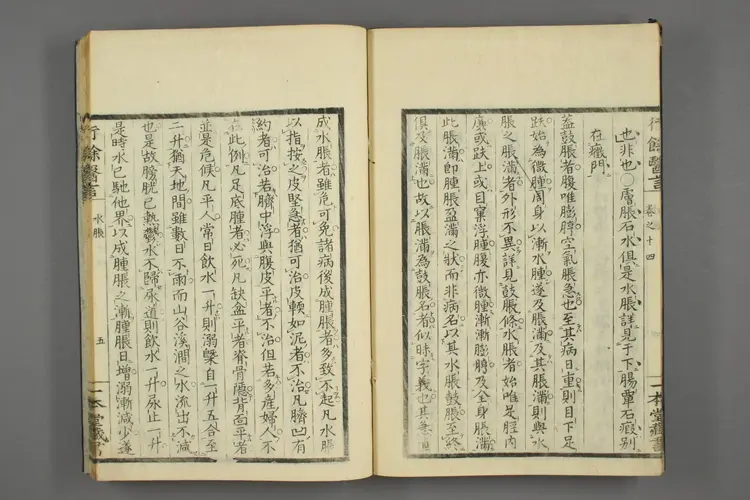 行餘醫言 卷之十四 一本堂藏書
也非也〇膚脹石水俱是水脹詳見于下腸覃石瘕別
在癥門
蓋鼓脹者腹唯膨脖空氣脹急也至其病日重則目下足
趺始為微腫周身以漸水腫遂及脹滿及其脹滿則與水
脹之脹滿者外形不異詳見鼓脹條水脹者始唯足脛內
廉或趺上或目窠浮腫腹亦微腫漸漸膨脖及全身脹滿
此脹滿即腫脹盈滿之狀而非病名以其水脹鼓脹至終
俱及脹滿也故以脹滿為鼓脹名者似昧字義也其急
成水脹者雖危可免諸病後成腫脹者多致不起凡水脹
以指按之皮堅急者猶可治皮輭如泥者不治凡臍凹有
約者可治若臍中浮與腹皮平者不治但若多產婦人不
在此例凡足底腫者必死凡缺盆平者脊骨隱背面平者
並是危候凡平人常日飲水一升則溺槩自一升五合至
二升猶天地間雖數日不雨而山谷溪澗之水流出不減
也是故膀胱已熱鬱水不歸尿道則飲水一升尿止一升
是時水已馳他界以成腫脹之漸腫脹日增溺漸減少遂
行餘醫言 水脹 五 一本堂藏書